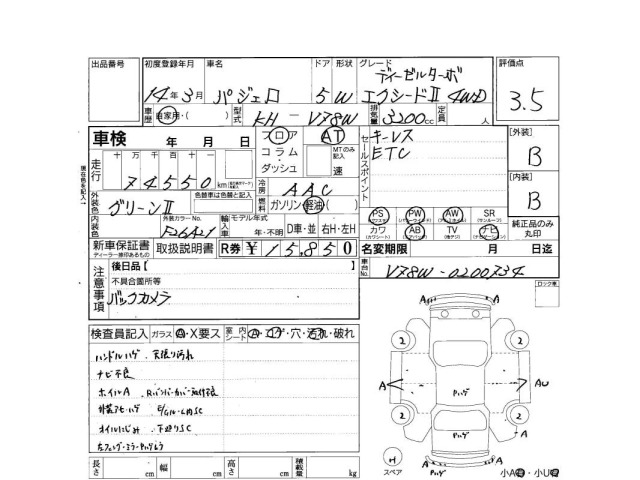 出品番号 初度登録年月 車名 ドア 形状 グレード 評価点
14年3月 パジェロ 5 W ディーゼルターボ
エクシードⅡ 4WD 3.5
車歴 自家用・( ) 型式 KH - V78W 排気量 3200cc 定員 人
車検 年 月 日 フロア AT セールスポイント キーレス [外装]
コラム MTのみ記入 ETC B
走行 十 万 千 百 十 一 ダッシュ 速
74550 km 冷房 AAC [内装]
外装色 グリーンⅡ 色替車は色替と記入 燃料 ガソリン 軽油( ) B
PS PW AW SR
内装色 外装カラーNo. 輸入車 モデル年式 カワ AB TV ナビ 純正品のみ丸印
年・不明 D車・並 右H・左H
新車保証書 取扱説明書 R券 ¥ 15,850 名変期限 月 日迄
ディーラー捺印あるもの
注意事項 後日品[ 車台No. V78W-0200734
不具合箇所等 ロック車
バックカメラ
検査員記入 ガラス A・X要ス 室内シート A・コゲ・穴・汚れ・破れ
ハンドルハゲ 天張り汚れ
ナビ不良
ホイルA Rバンパーカバー取付不良
オイルにじみ 下廻りSC
A A
2 2
A A AU
Pハゲ
2 2
Pハゲ
H
スペア
A A
Pハゲ
小A 小U
長さ cm 幅 cm 高さ cm 積載量 kg